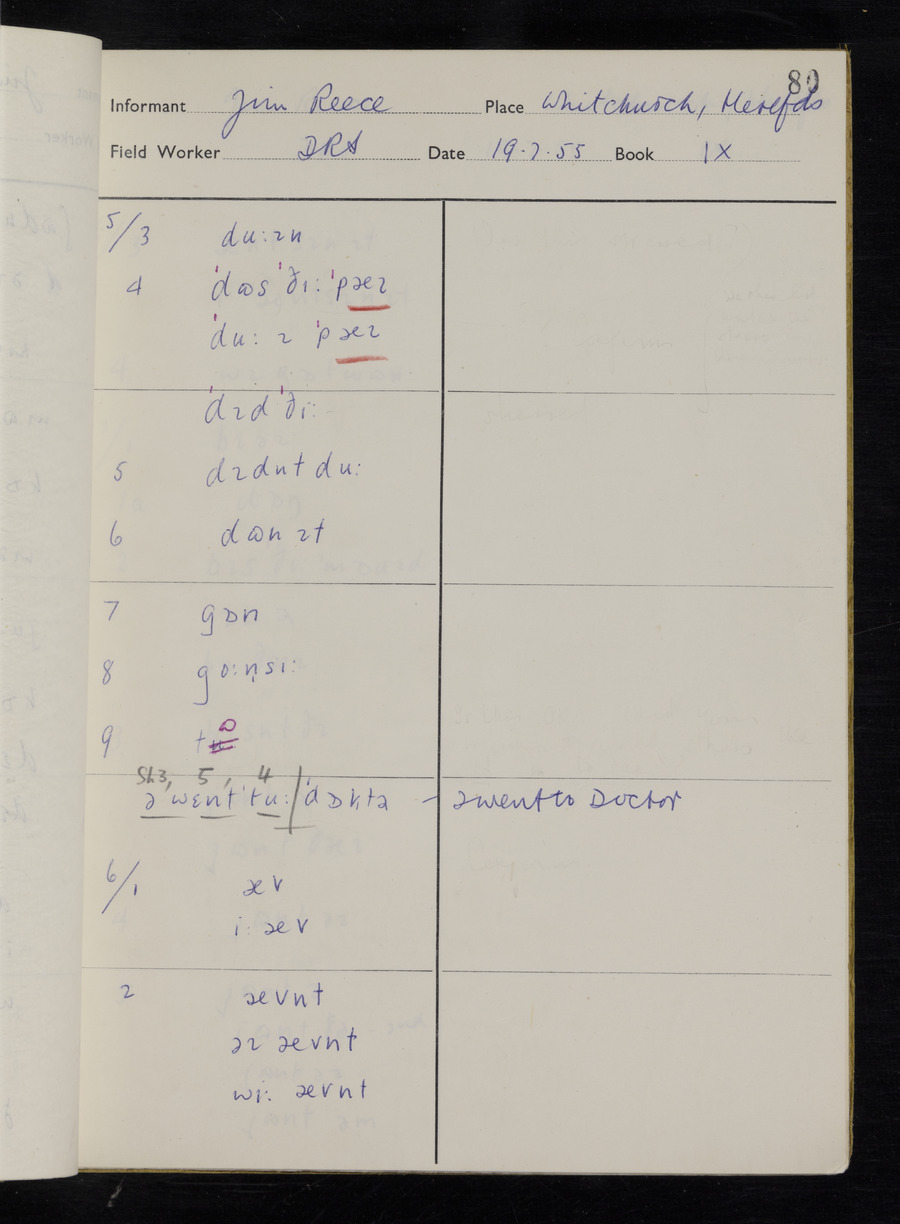 80
Informant Jim Reece Place Whitchurch, Herefds
Field Worker DRS Date 19.7.55 Book IX
5/3 du:ɪn
4 ˈdʊs ˈðɪ: ˈpæɪ
ˈdu: ɪ ˈpæɪ
ˈdɪd ˈðɪ:
5 dɪdnt du:
6 dʊn ɪt
7 gɒn
8 gɒ:n̩sɪ:
9 tɒ
Sh3, 5, 4
ə ˈwɛnt ˈtu: / ˈdɒktə – ə went to Doctor
6/1 æv
i: æv
2 ævnt
əɪ ævnt
wi: ævnt